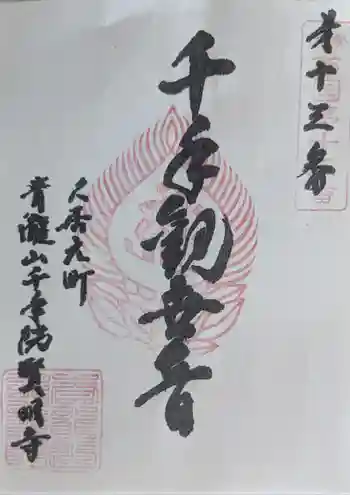 第十三番
千手観世音
久居元町
青瀧山千手院賢明寺